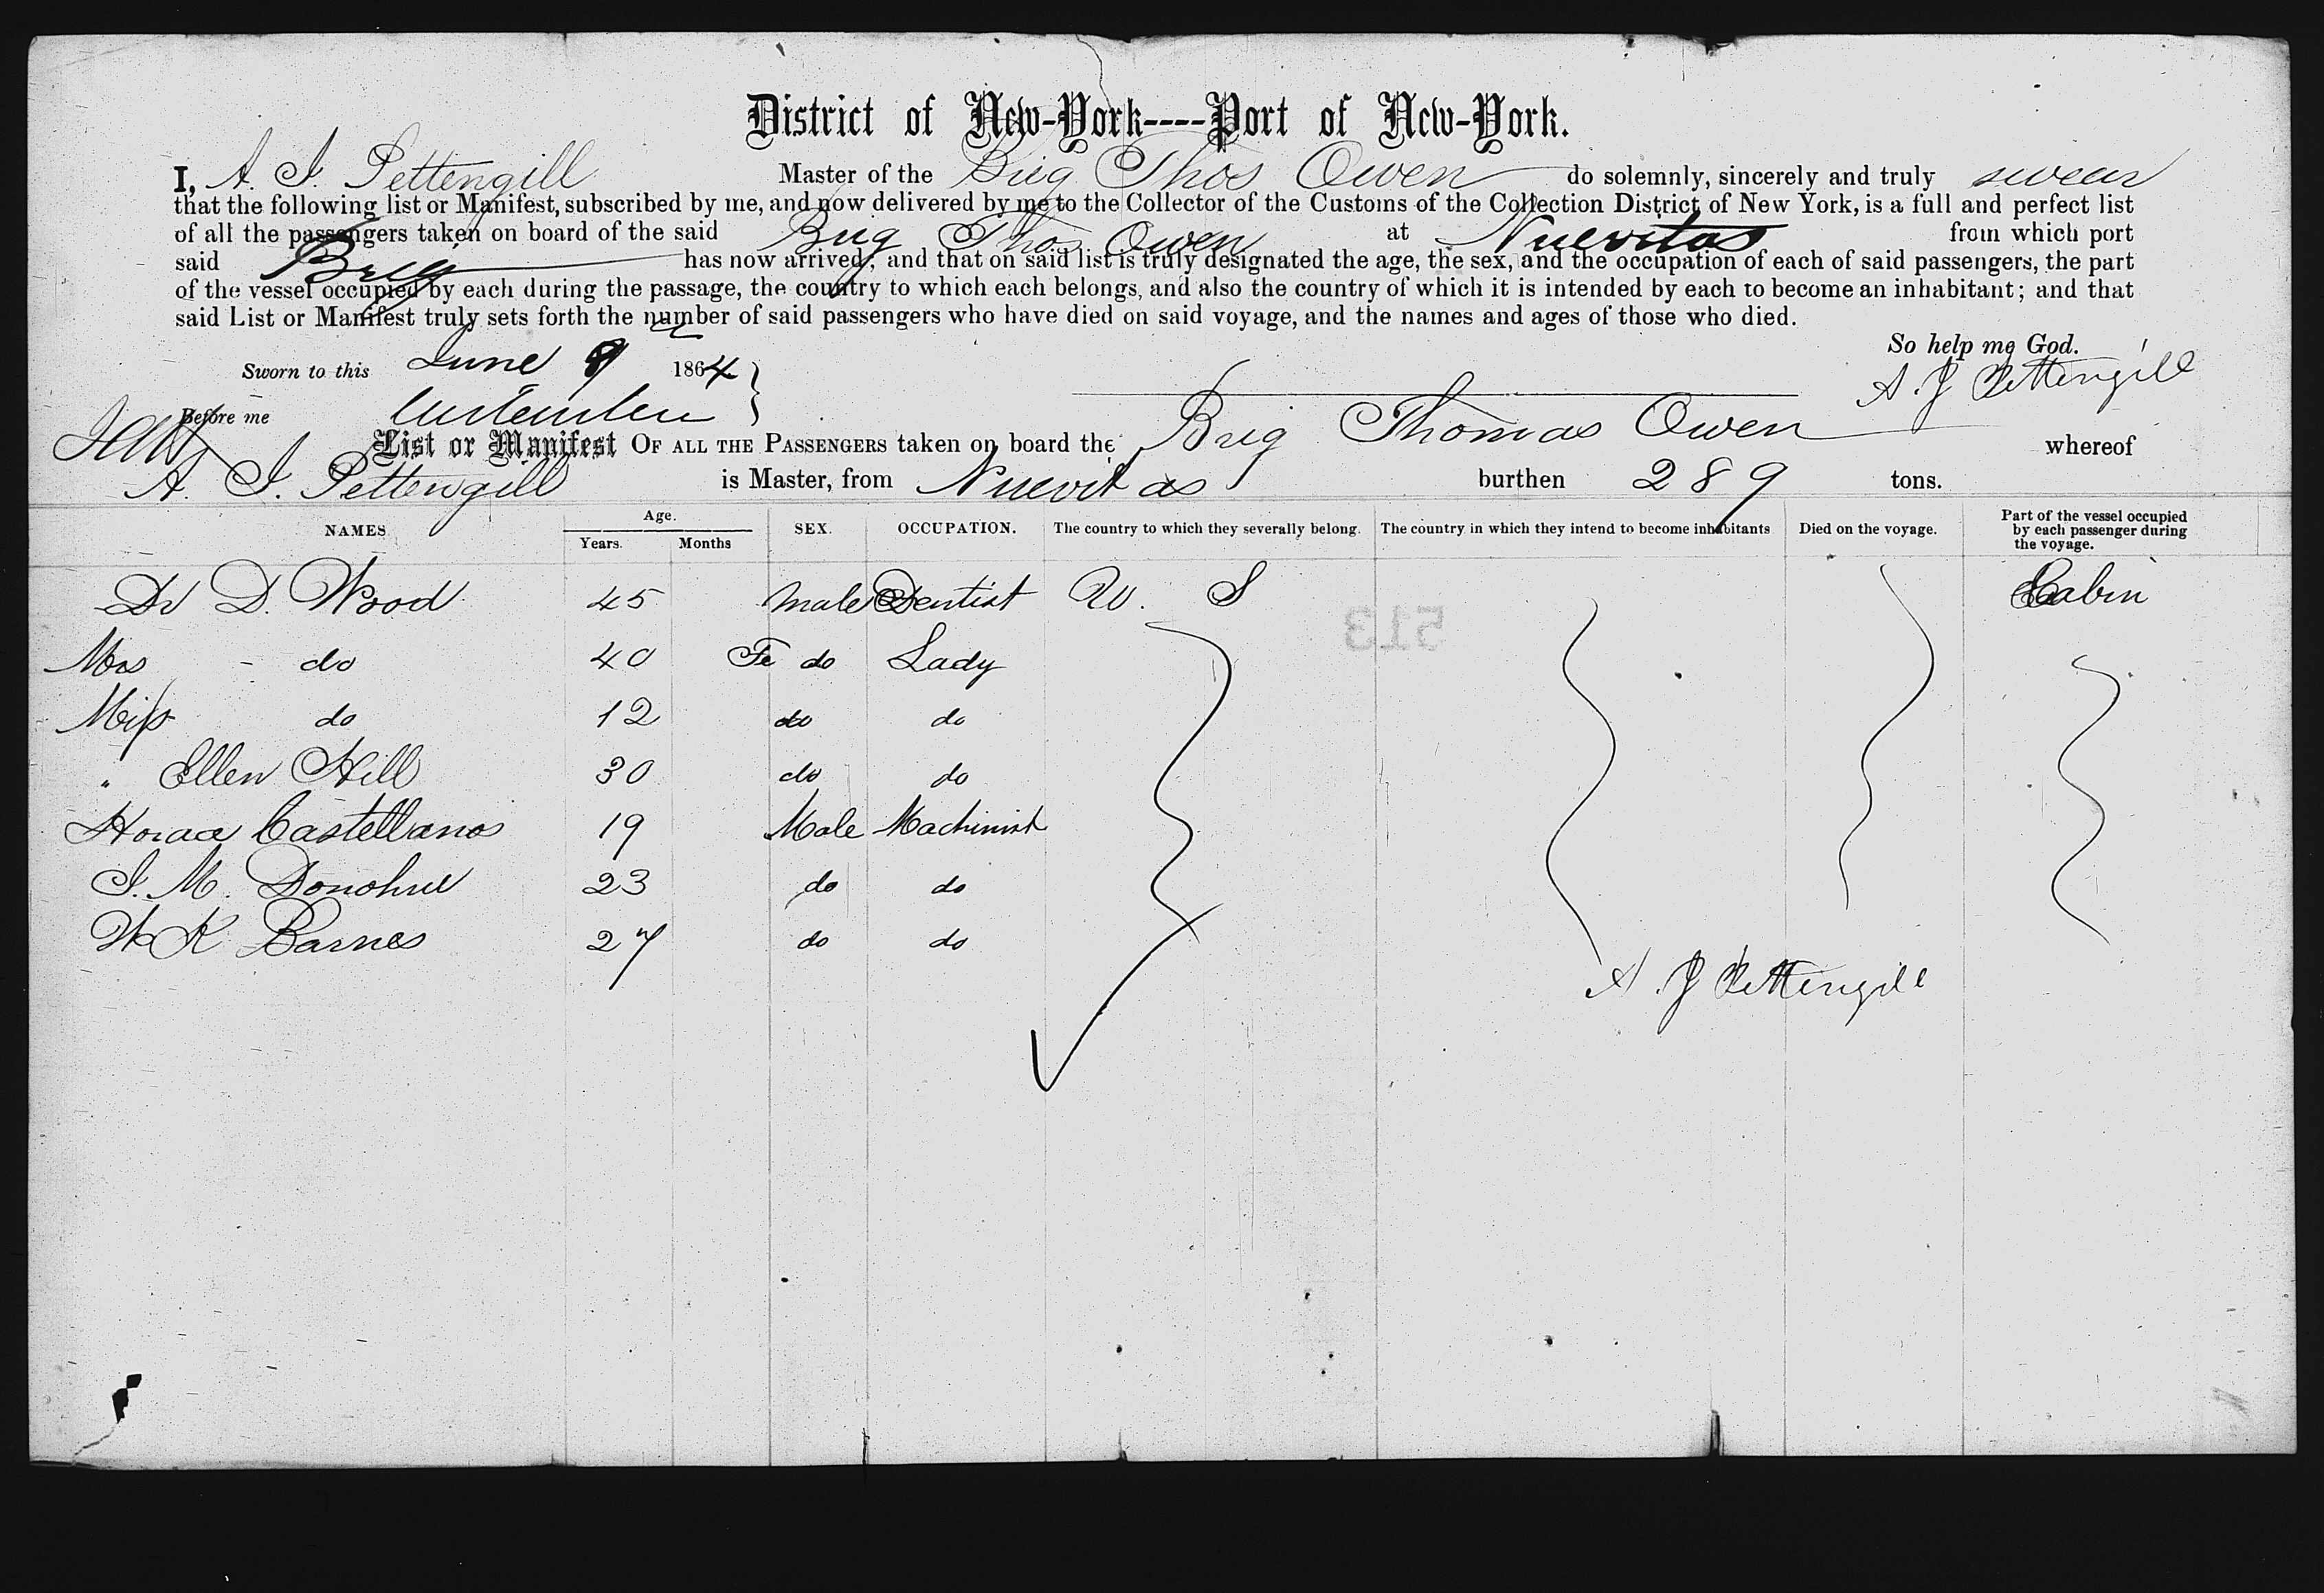 District of New-York----Port of New-York.
I, A. J. Pettengill Master of the Brig Thos Owen do solemnly, sincerely and truly swear
that the following list or Manifest, subscribed by me, and now delivered by me to the Collector of the Customs of the Collection District of New York, is a full and perfect list
of all the passengers taken on board of the said Brig Thos Owen at Nuevitas from which port
said Brig has now arrived; and that on said list is truly designated the age, the sex, and the occupation of each of said passengers, the part
of the vessel occupied by each during the passage, the country to which each belongs, and also the country of which it is intended by each to become an inhabitant; and that
said List or Manifest truly sets forth the number of said passengers who have died on said voyage, and the names and ages of those who died.
So help me God.
Sworn to this June 9 1864 A. J Pettengill
Before me
List or Manifest OF ALL THE PASSENGERS taken on board the Brig Thomas Owen whereof
A. J. Pettengill is Master, from Nuevitas burthen 289 tons.
NAMES Age. Years. Months SEX. OCCUPATION. The country to which they severally belong. The country in which they intend to become inhabitants Died on the voyage. Part of the vessel occupied by each passenger during the voyage.
Dr D. Wood 45 Male Dentist U. S Cabin
Mrs - do 40 Fe do Lady
Miss do 12 do do
" Ellen Hill 30 do do
Horace Castellanos 19 Male Machinist
J. M. Donohue 23 do do
W K Barnes 27 do do
A. J Pettengill
513